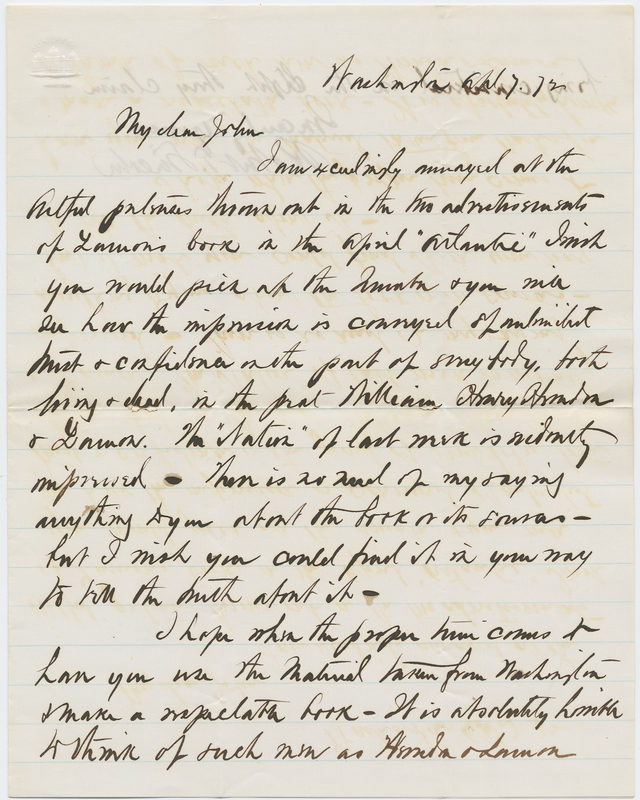 Washington Apl 7. 72
My dear John
I am exceedingly annoyed at the
artful pretenses thrown out in the two advertisements
of Lamon's book in the April "Atlantic" I wish
you would pick up the Number & you will
see how the impression is conveyed of unlimited
trust & confidence on the part of everybody, both
living & dead, in the great William Henry Herndon
& Lamon. The "Nation" of last week is evidently
impressed - There is no need of my saying
anything to you about the book or its sources -
but I wish you could find it in your way
to tell the truth about it -
I hope when the proper time comes to
have you use the Material taken from Washington
& make a respectable book - It is absolutely horrible
to think of such men as Herndon & Lamon